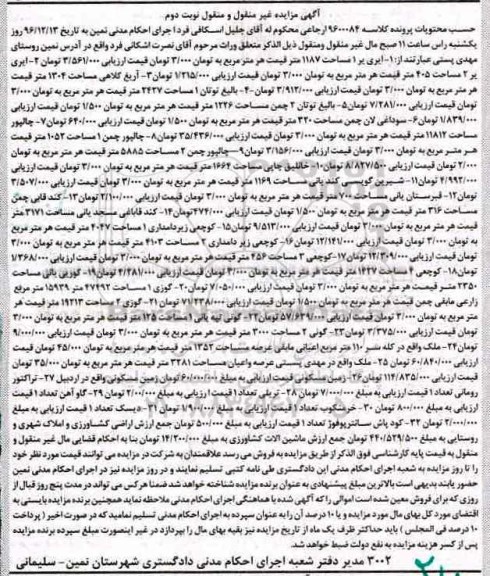 آگهی مزایده غیر منقول و منقول نوبت دوم
حسب محتویات پرونده کلاسه ۹۶۰۰۰۸۴ ارجاعی محکوم له آقای جلیل اسکافی فرد اجرای احکام مدنی نمین به تاریخ ۹۶/۱۲/۱۳ روز
یکشنبه راس ساعت ۱۱ صبح مال غیر منقول ومنقول ذیل الذکر متعلق وراث مرحوم آقای نصرت اشکانی فرد واقع در آدرس نمین روستای
مهدی پستی عبارتند از: ۱- ایری یر ۱ مساحت ۱۱۸۷ متر قیمت هر متر مربع به تومان ۳/۰۰۰ تومان قیمت ارزیابی ۳/۵۶۱/۰۰۰ تومان ۲- ایری
یر ۲ مساحت ۴۰۵ متر قیمت هر متر مربع به تومان ۳/۰۰۰ تومان قیمت ارزیابی ۱/۲۱۵/۰۰۰ تومان ۳- آریخ کلاهی مساحت ۱۳۰۴ متر قیمت
هر متر مربع به تومان ۳/۰۰۰ تومان قیمت ارزیابی ۳/۹۱۲/۰۰۰ تومان ۴- بالیغ توتان ۱ مساحت ۲۴۲۷ متر قیمت هر متر مربع به تومان ۳/۰۰۰
تومان قیمت ارزیابی ۷/۲۸۱/۰۰۰ تومان ۵- بالیغ توتان ۲ چمن مساحت ۱۲۲۶ متر قیمت هر متر مربع به تومان ۱/۵۰۰ تومان قیمت ارزیابی
۱/۸۳۹/۰۰۰ تومان ۶- سوداغی لان چمن مساحت ۳۲۰ متر قیمت هر متر مربع به تومان ۱/۵۰۰ تومان قیمت ارزیابی ۶۴۰/۰۰۰ تومان ۷- چالپور
مساحت ۱۱۸۱۲ متر قیمت هر متر مربع به تومان ۳/۰۰۰ تومان قیمت ارزیابی ۳۵/۴۳۶/۰۰۰ تومان ۸- چالپور چمن ۱ مساحت ۱۰۵۲ متر قیمت
هر متر مربع به تومان ۳/۰۰۰ تومان قیمت ارزیابی ۳/۱۵۶/۰۰۰ تومان ۹- چالپور چمن ۲ مساحت ۵۸۸۵ متر قیمت هر متر مربع به تومان
۲/۰۰۰ تومان قیمت ارزیابی ۸/۸۲۷/۵۰۰ تومان ۱۰- خالئین چایی مساحت ۱۶۶۴ متر قیمت هر متر مربع به تومان ۳/۰۰۰ تومان قیمت ارزیابی
۴/۹۹۲/۰۰۰ تومان ۱۱- شیرین گویی کند یانی مساحت ۱۱۶۹ متر قیمت هر متر مربع به تومان ۳/۰۰۰ تومان قیمت ارزیابی ۳/۵۰۷/۰۰۰
تومان ۱۲- قبرستان یانی مساحت ۷۰۰ متر قیمت هر متر مربع به تومان ۳/۰۰۰ تومان قیمت ارزیابی ۲/۱۰۰/۰۰۰ تومان ۱۳- کند قابی چمن
مساحت ۳۱۶ متر قیمت هر متر مربع به تومان ۱/۵۰۰ تومان قیمت ارزیابی ۴۷۴/۰۰۰ تومان ۱۴- کند قاباغی مسجد یانی مساحت ۳۱۷۱ متر
قیمت هر متر مربع به تومان ۳/۰۰۰ تومان قیمت ارزیابی ۹/۵۱۳/۰۰۰ تومان ۱۵- کوچعی زیردامداری ۱ مساحت ۴۰۴۷ متر قیمت هر متر مربع
به تومان ۳/۰۰۰ تومان قیمت ارزیابی ۱۲/۱۴۱/۰۰۰ تومان ۱۶- کوچعی زیر دامداری ۲ مساحت ۴۱۰۳ متر قیمت هر متر مربع به تومان ۳/۰۰۰
تومان قیمت ارزیابی ۱۲/۳۰۹/۰۰۰ تومان ۱۷- کوچعی ۳ مساحت ۴۵۶ متر قیمت هر متر مربع به تومان ۳/۰۰۰ تومان قیمت ارزیابی ۱/۳۶۸/۰۰۰
تومان ۱۸- کوچعی ۴ مساحت ۱۴۲۷ متر قیمت هر متر مربع به تومان ۳/۰۰۰ تومان قیمت ارزیابی ۴/۲۸۱/۰۰۰ تومان ۱۹- گوزیی باتق مساحت
۲۳۵۰ متر قیمت هر متر مربع به تومان ۳/۰۰۰ تومان قیمت ارزیابی ۷/۰۵۰/۰۰۰ تومان ۲۰- گوزی ۱ مساحت ۴۷۴۹۲ متر ۱۵۹۳۹ متر مرفع
زراعی مابقی چمن قیمت هر متر مربع به تومان ۱/۵۰۰ تومان قیمت ارزیابی ۷۱/۲۳۸/۰۰۰ تومان ۲۱- گوزی ۲ مساحت ۱۹۲۱۳ متر قیمت هر
متر مربع به تومان ۳/۰۰۰ تومان قیمت ارزیابی ۵۷/۶۳۹/۰۰۰ تومان ۲۲- گونی تپه یانی ۱ مساحت ۱۲۵ متر قیمت هر متر مربع به تومان ۳/۰۰۰
تومان قیمت ارزیابی ۳/۳۷۵/۰۰۰ تومان ۲۳- گونی ۲ مساحت ۳۰۰۰ متر قیمت هر متر مربع به تومان ۳/۰۰۰ تومان قیمت ارزیابی ۹/۰۰۰/۰۰۰
تومان ۲۴- ملک واقع در کله سر ۱۱۰ متر مربع اعیانی مابقی عرصه مساحت ۱۳۵۲ متر قیمت هر متر مربع به تومان ۴۵/۰۰۰ تومان قیمت
ارزیابی ۶۰/۸۴۰/۰۰۰ تومان ۲۵- ملک واقع در مهدی پستی عرصه واعیان مساحت ۳۲۸۱ متر قیمت هر متر مربع به تومان ۳۵/۰۰۰ تومان
قیمت ارزیابی ۱۱۴/۸۳۵/۰۰۰ تومان ۲۶- زمین مسکونی قیمت ارزیابی به مبلغ ۶۰/۰۰۰/۰۰۰ تومان زمین مسکونی واقع در اردبیل ۲۷- تراکتور
رومانی تعداد ۱ قیمت ارزیابی به مبلغ ۷/۰۰۰/۰۰۰ تومان ۲۸- تریلی تعداد ۱ قیمت ارزیابی به مبلغ ۲/۰۰۰/۰۰۰ تومان ۲۹- گاو آهن تعداد ۱ قیمت
ارزیابی به مبلغ ۸۰۰/۰۰۰ تومان ۳۰- خرمنکوب تعداد ۱ قیمت ارزیابی به مبلغ ۱/۹۰۰/۰۰۰ تومان ۳۱- دیسک تعداد ۱ قیمت ارزیابی به مبلغ
۲/۰۰۰/۰۰۰ تومان ۳۲- کود پاش سانتریوفوژ تعداد ۱ قیمت ارزیابی به مبلغ ۵۰۰/۰۰۰ تومان جمع ارزش اراضی کشاورزی و املاک شهری و
روستایی به مبلغ ۴۴۰/۵۲۹/۵۰۰ تومان جمع ارزش ماشین الات کشاورزی به مبلغ ۱۴/۲۰۰/۰۰۰ تومان بنا به احکام قضایی مال غیر منقول و
منقول به قیمت پایه کارشناسی فوق الذکر از طریق مزایده به فروش می رسد علاقمندان به شرکت در مزایده می توانند قیمت مورد نظر خود
را تا روز مزایده به شعبه اجرای احکام مدنی این دادگستری طی نامه کتبی تسلیم نمایند و در روز مزایده نیز در اجرای احکام مدنی نمین
حضور یابند بدیهی است بالاترین مبلغ پیشنهادی به عنوان برنده مزایده شناخته خواهد شد ضمنا هر کس می تواند در مدت پنج روز قبل از
روزی که برای فروش معین شده است اموالی را که آگهی شده با هماهنگی اجرای احکام مدنی ملاحظه نماید همچنین برنده مزایده بایستی به
اقتضای مورد کل بهای مال مورد مزایده و یا ۱۰ درصد آن را به عنوان سپرده به اجرای احکام مدنی تسلیم نمایند که در صورت اخیر (پرداخت
۱۰ درصد فی المجلس) باید حداکثر ظرف یک ماه از تاریخ مزایده نیز بقیه بهای مال را بپردازد در غیر اینصورت مبلغ سپرده برنده مزایده
پس از کسر هزینه مزایده به نفع دولت ضبط خواهد شد.
۳۰۰۲ مدیر دفتر شعبه اجرای احکام مدنی دادگستری شهرستان نمین- سلیمانی